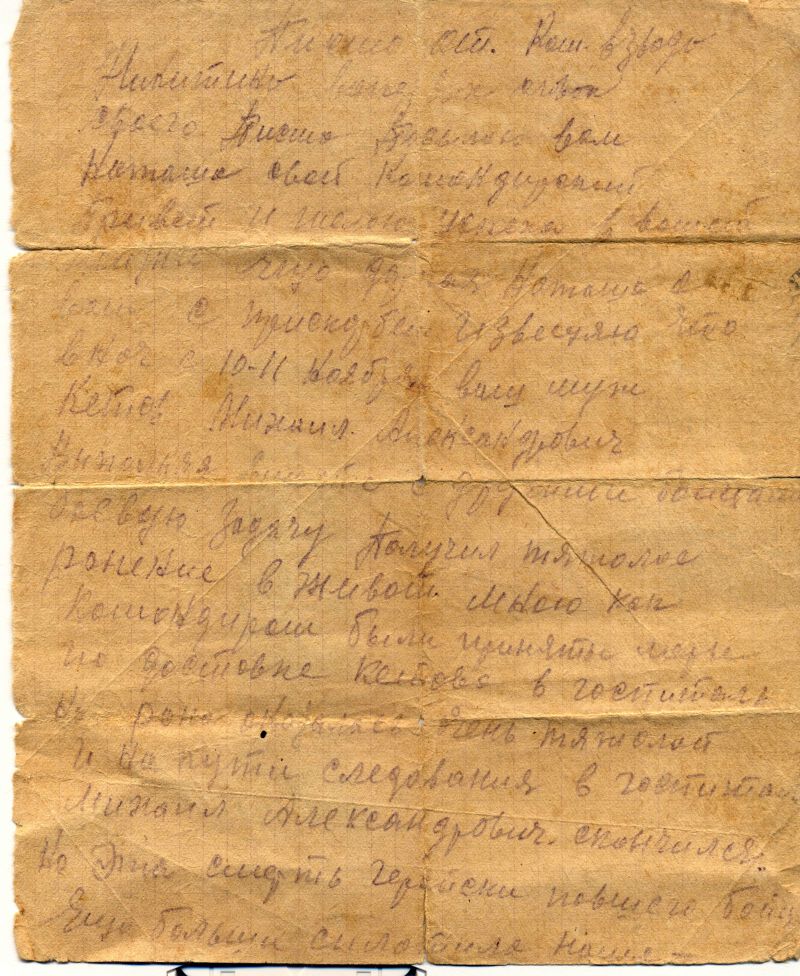 Письмо от. Ком. взвода
Никитина
своего Письма Посылаю вам
Наташа свой Командирский
Привет и желаю успеха в вашей
жизни Наташа
вам с прискорбем известяю что
в ноч с 10-11 Ноября ваш муж
Кетов Михаил. Александрович
Выполняя вместе с другими бойцами
боевую задачу Получил тяжолое
ранение в живот. Мною как
Командиром были приняты меры
по доставке Кетова в госпиталь
Но рана оказалась очень тяжолой
И на пути следования в госпитал
Михаил Александрович. скончился.
Но эта смерть геройски повшего бойца
Ещо больши сплотила наше—